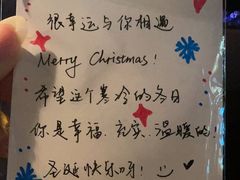 很幸运与你相遇
Merry Christmas!
希望这个寒冷的冬日
你是幸福、充实、温暖的!
圣诞快乐呀!